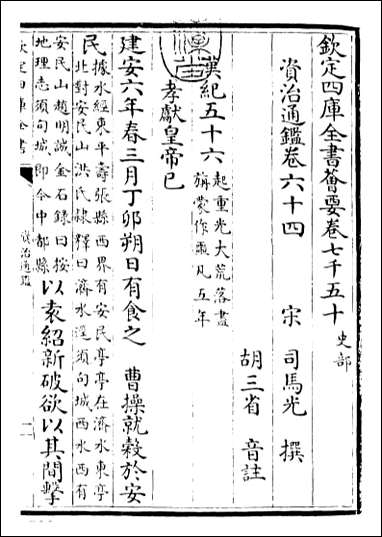 欽定四庫全書薈要卷七千五十 史部
資治通鑑卷六十四 宋 司馬光 撰
胡三省 音註
漢紀五十六 起重光大荒落盡
旃蒙作噩凡五年
孝獻皇帝巳
建安六年春三月丁卯朔日有食之 曹操就穀於安
民 據水經東平壽張縣西界有安民亭亭在濟水東亭
北對安民山洪氏隸釋曰濟水逕須句城西水西有
安民山趙明誠金石錄曰按
地理志須句城即今中都縣 以袁紹新破欲以其間擊
欽定四庫全書
資治通鑑